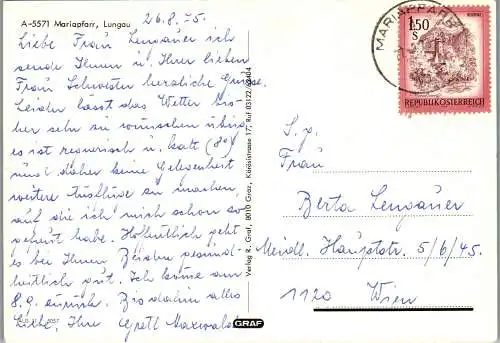 A-5571 Mariapfarr, Lungau
26.8.75.
Liebe Frau Lengauer ich
sende Ihnen u. Ihrer lieben
Frau Schwester herzliche Grüsse.
Leider lässt das Wetter bis-
her sehr zu wünschen übrig
es ist regnerisch u. kalt (8°)
und daher keine Gelegenheit
weitere Ausflüge zu machen,
auf die ich mich schon so
gefreut habe. Hoffentlich geht
es bei Ihnen Beiden gesund-
heitlich gut. Ich komme am
8.9. zurück. Bis dahin alles
Liebe, Ihre Gretl
Verlag R. Graf, 8010 Graz, Körösistrasse 17, Ruf 03122/
GRAF
MARIAPFARR
1.50
S
REPUBLIK ÖSTERREICH
S. g.
Frau
Berta Lengauer
Meidl. Hauptstr. 5/6/45.
1120 Wien